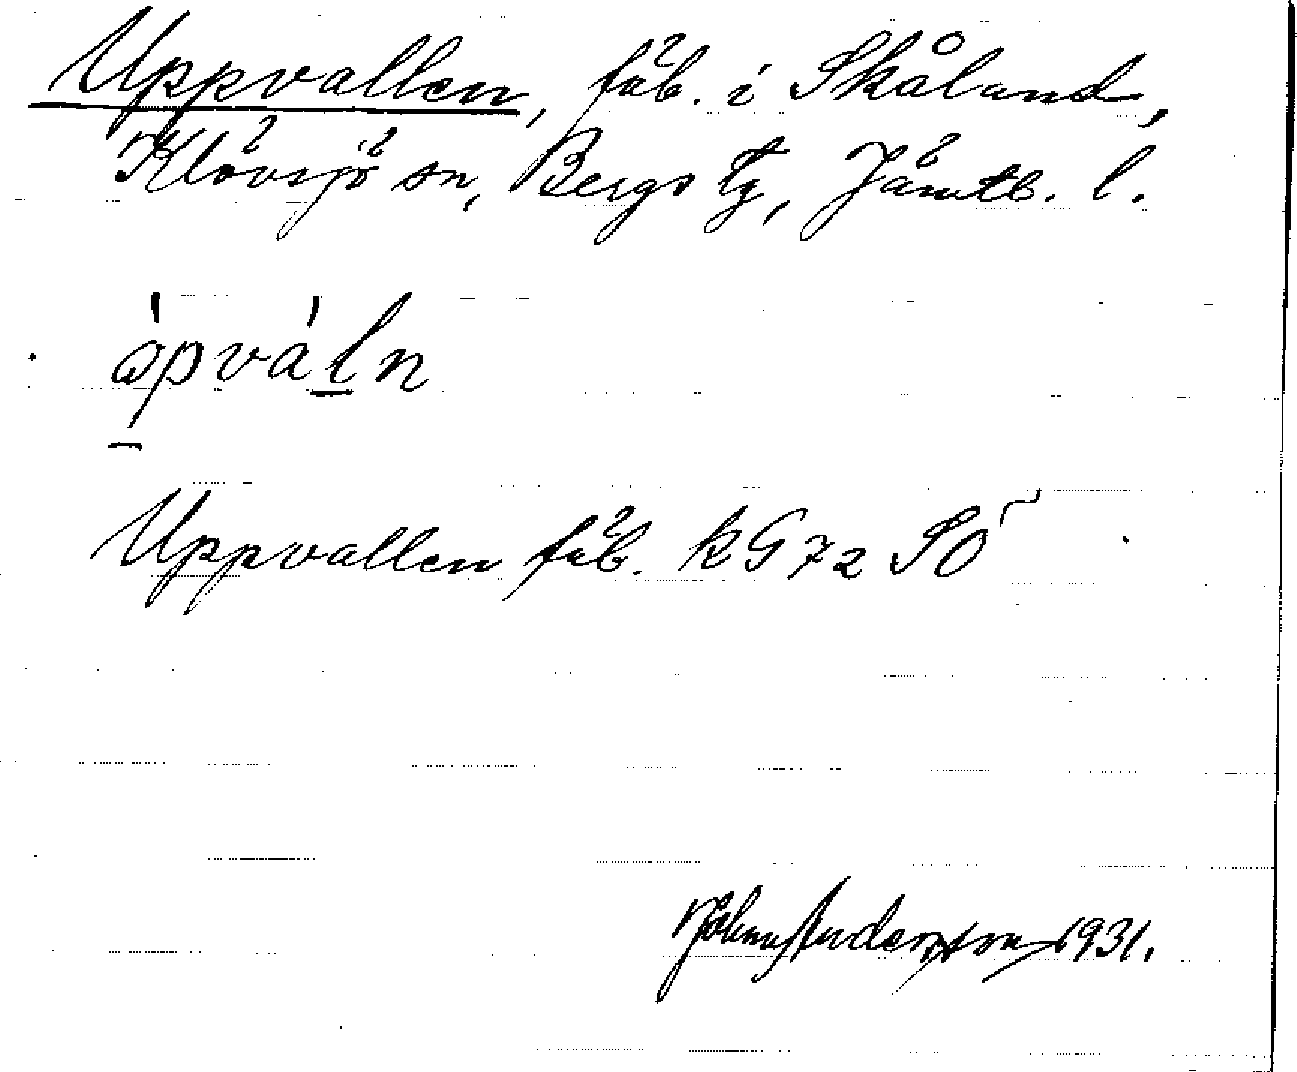 Uppvallen, fäb. i Skåland,
Klövsjö sn, Bergs tg, Jämtl. l.
Uppvallen fäb. k G 72 SO
Johan Andersson 1931.